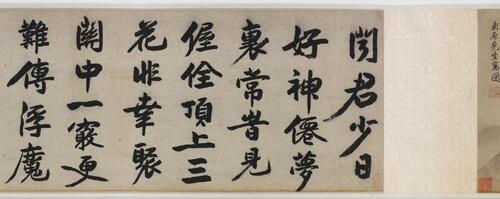 聞君少日
好神僊夢
裏常昔見
偓佺頂上三
花非幸聚
關中一竅更
難傳浮魔